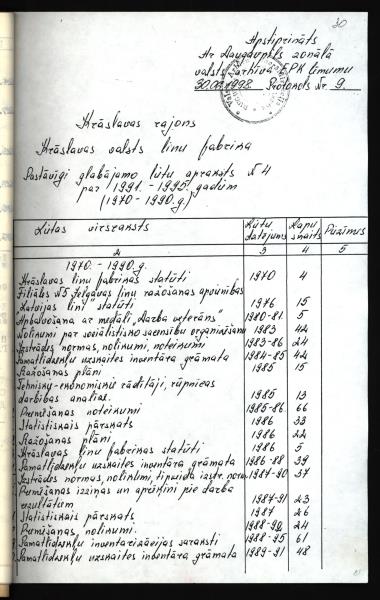 30
Apstiprināts
Ar Daugavpils zonālā
valsts arhīva EPK lēmumu
30.01.1998. Protokols Nr. 9.
Krāslavas rajons
Krāslavas valsts linu fabrika
Pastāvīgi glabājamo lietu apraksts N 4
par 1991. - 1995. gadum
(1970 - 1990. g.)
Lietas virsraksts Lietu datējums Lapu skaits Piezīmes
2 3 4 5
1970. - 1990. g.
Krāslavas linu fabrikas statūti 1970 4
Filiāles N5 Jelgavas linu ražošanas apvienības
"Latvijas lini" statūti 1976 15
Apbalvošana ar medāli "Darba veterāns" 1980-81. 5
Nolikumi par sociālistisko sacensību organizēšanu 1983 44
Izstrādes normas, nolikumi, noteikumi 1983-86 24
Pamatlīdzekļu uzskaites inventāra grāmata 1984-85 44
Ražošanas plāni 1985 15
Tehniski-ekonomiskie rādītāji, rūpnīcas
darbības analīse. 1985 13
Prēmēšanas noteikumi 1985-86. 66
Statistiskais pārskats 1986 33
Ražošanas plāni 1986 22
Krāslavas linu fabrikas statūti 1986 5
Pamatlīdzekļu uzskaites inventāra grāmata 1986-88 39
Izstrādes normas, nolikumi, tipveida izstr. norm. 1987-90 37
Prēmēšanas izziņas un aprēķini pie darba
rezultātiem 1987-91 23
Statistiskais pārskats 1987 26
Prēmēšanas nolikumi. 1988-90 24
Pamatlīdzekļu inventarizācijas saraksti 1988-95 61
Pamatlīdzekļu uzskaites inventāra grāmata 1989-91 48